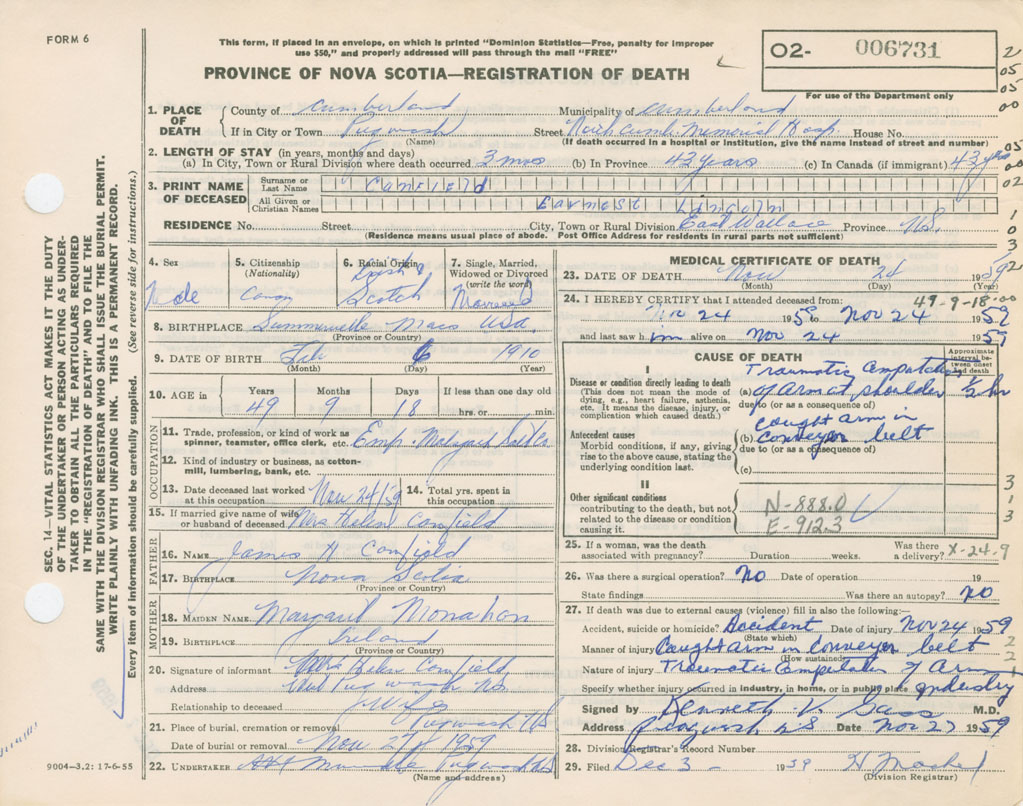 FORM 6
This form, if placed in an envelope, on which is printed "Dominion Statistics—Free, penalty for improper
use $50," and properly addressed will pass through the mail "FREE"
O2- 006731
PROVINCE OF NOVA SCOTIA—REGISTRATION OF DEATH
For use of the Department only
2
05
05
00
05
00
02
1
0
3
2
SEC. 14—VITAL STATISTICS ACT MAKES IT THE DUTY
OF THE UNDERTAKER OR PERSON ACTING AS UNDER-
TAKER TO OBTAIN ALL THE PARTICULARS REQUIRED
IN THE "REGISTRATION OF DEATH" AND TO FILE THE
SAME WITH THE DIVISION REGISTRAR WHO SHALL ISSUE THE BURIAL PERMIT.
WRITE PLAINLY WITH UNFADING INK. THIS IS A PERMANENT RECORD.
Every item of information should be carefully supplied. (See reverse side for instructions.)
1. PLACE OF DEATH County of Cumberland Municipality of Cumberland
If in City or Town Pugwash Street North Cumb. Memorial Hosp. House No.
(Name) (If death occurred in a hospital or institution, give the name instead of street and number)
2. LENGTH OF STAY (in years, months and days)
(a) In City, Town or Rural Division where death occurred 3 mos (b) In Province 43 years (c) In Canada (if immigrant) 43 yrs
3. PRINT NAME OF DECEASED Surname or Last Name Canfield
All Given or Christian Names Earnest Lincoln
RESIDENCE No. Street City, Town or Rural Division East Wallace Province N.S.
(Residence means usual place of abode. Post Office Address for residents in rural parts not sufficient)
4. Sex Male
5. Citizenship (Nationality)
6. Racial Origin Scotch
7. Single, Married, Widowed or Divorced (write the word) Married
8. BIRTHPLACE Mass USA.
(Province or Country)
9. DATE OF BIRTH Feb 6 1910
(Month) (Day) (Year)
10. AGE in Years Months Days If less than one day old
49 9 18 hrs. or min.
OCCUPATION
11. Trade, profession, or kind of work as
spinner, teamster, office clerk, etc. Emp. Malagash Salt Co
12. Kind of industry or business, as cotton-
mill, lumbering, bank, etc.
13. Date deceased last worked at this occupation Nov 24/59 14. Total yrs. spent in this occupation
15. If married give name of wife
or husband of deceased Mrs Helen Canfield
FATHER
16. NAME James H Canfield
17. BIRTHPLACE Nova Scotia
(Province or Country)
MOTHER
18. MAIDEN NAME Margaret Monahan
19. BIRTHPLACE Ireland
(Province or Country)
20. Signature of informant Mrs Helen Canfield
Address Pugwash NS
Relationship to deceased Wife
21. Place of burial, cremation or removal Pugwash NS
Date of burial or removal Nov 27 1959
22. UNDERTAKER Pugwash NS
(Name and address)
9004—3.2: 17-6-55
MEDICAL CERTIFICATE OF DEATH
23. DATE OF DEATH Nov 24 1959
(Month) (Day) (Year)
24. I HEREBY CERTIFY that I attended deceased from: 49-9-18-00
Nov 24 1959 to Nov 24 1959
and last saw him alive on Nov 24 1959
CAUSE OF DEATH
Approximate interval between onset and death
I
Disease or condition directly leading to death
(This does not mean the mode of
dying, e.g., heart failure, asthenia,
etc. It means the disease, injury, or
complication which caused death.)
Traumatic
(a) of arm at shoulder 1/2 hr
due to (or as a consequence of)
Antecedent causes
Morbid conditions, if any, giving
rise to the above cause, stating the
underlying condition last.
caught arm in
(b) conveyor belt
due to (or as a consequence of)
(c)
II
Other significant conditions
contributing to the death, but not
related to the disease or condition
causing it.
N-888.0
E-912.3
3
1
3
25. If a woman, was the death
associated with pregnancy? Duration weeks. Was there a delivery? X-24.9
26. Was there a surgical operation? No Date of operation 19
State findings Was there an autopsy? No
27. If death was due to external causes (violence) fill in also the following:—
Accident, suicide or homicide? Accident Date of injury Nov 24 1959
(State which)
Manner of injury Caught arm in conveyor belt
(How sustained)
Nature of injury Traumatic of Arm
Specify whether injury occurred in industry, in home, or in public place Industry
Signed by Kenneth V. Gass M.D.
Address Pugwash N.S Nov 27 1959
28. Division Registrar's Record Number
29. Filed Dec 3 1959 H
(Division Registrar)